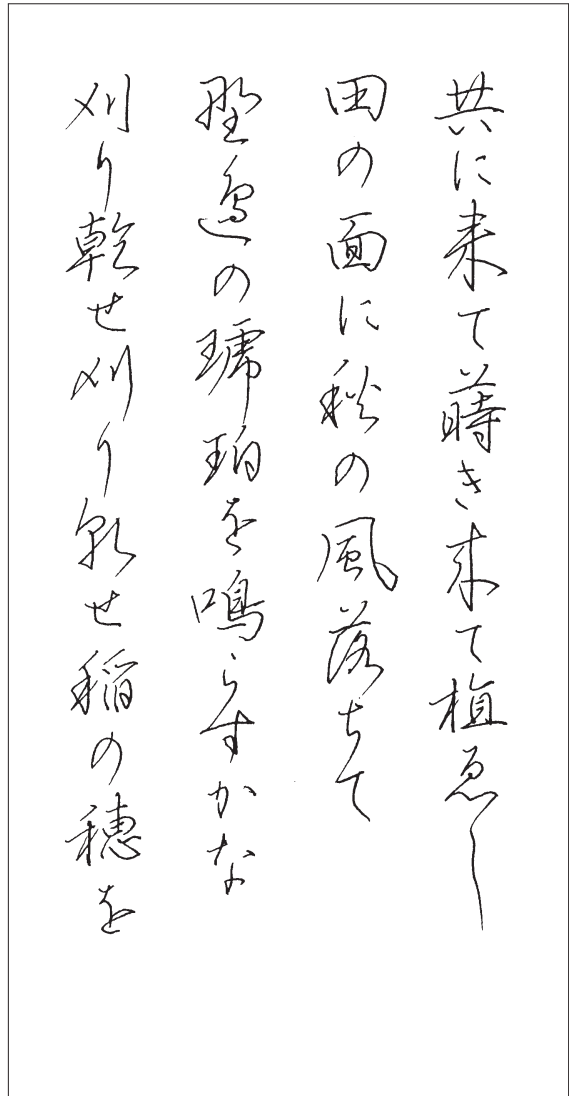 共に来て蒔き来て植ゑし
田の面に秋の風落ちて
野邊の琥珀を鳴らすかな
刈り乾せ刈り乾せ稲の穂を